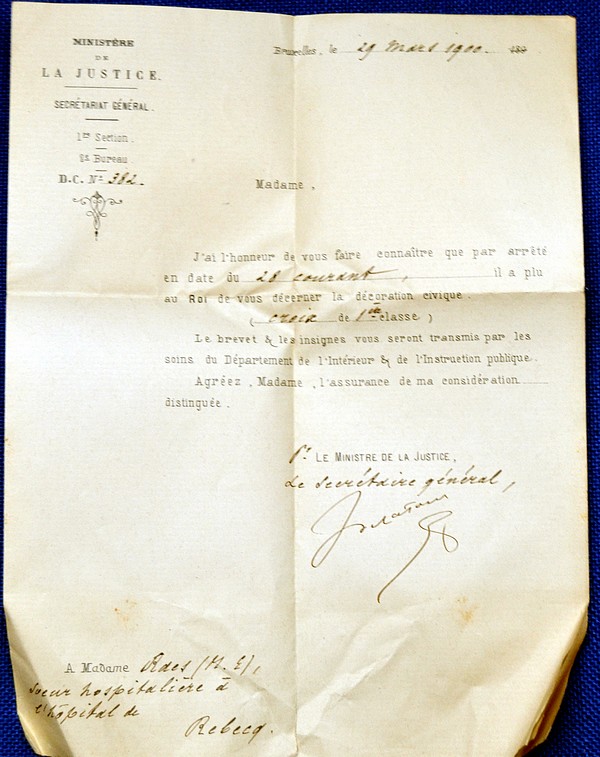 MINISTÈRE
DE
LA JUSTICE.
SECRÉTARIAT GÉNÉRAL.
1re Section.
2e Bureau
D.C. No 382.
Bruxelles, le 29 mars 1900. 189
Madame,
J'ai l'honneur de vous faire connaître que par arrêté
en date du 28 courant, il a plu
au Roi de vous décerner la décoration civique.
(croix de 1re classe)
Le brevet & les insignes vous seront transmis par les
soins du Département de l'Intérieur & de l'Instruction publique.
Agréez, Madame, l'assurance de ma considération
distinguée.
Pr LE MINISTRE DE LA JUSTICE,
Le secrétaire général,
A Madame Raes (M. E),
soeur hospitalière à
l'hôpital de
Rebecq.